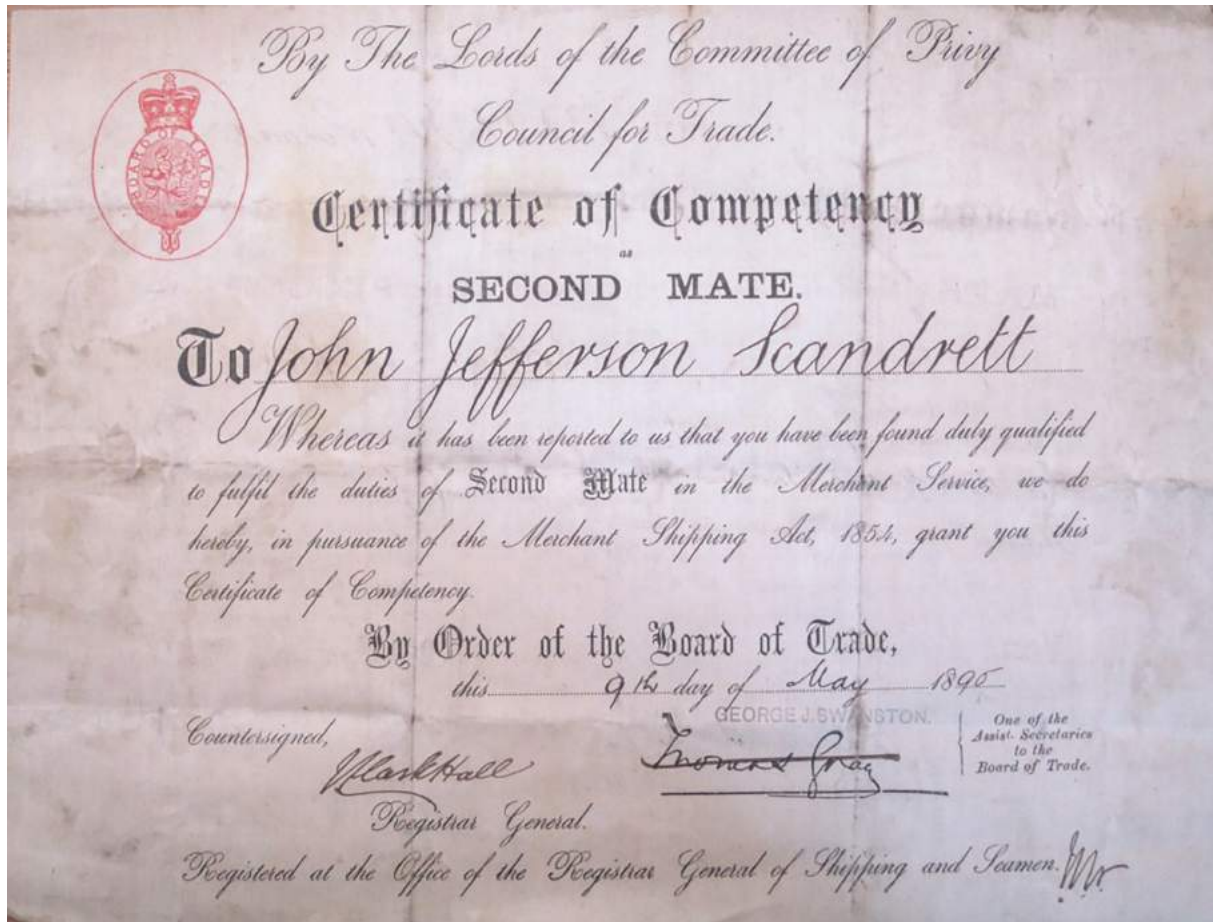 By The Lords of the Committee of Privy
Council for Trade.
BOARD OF TRADE
Certificate of Competency
as
SECOND MATE.
To John Jefferson Scandrett
Whereas it has been reported to us that you have been found duly qualified
to fulfil the duties of Second Mate in the Merchant Service, we do
hereby, in pursuance of the Merchant Shipping Act, 1854, grant you this
Certificate of Competency.
By Order of the Board of Trade,
this 9th day of May 1890
GEORGE J. SWANSTON.
Countersigned,
Thomas Gray
One of the
Assist. Secretaries
to the
Board of Trade.
Hall
Registrar General.
Registered at the Office of the Registrar General of Shipping and Seamen.